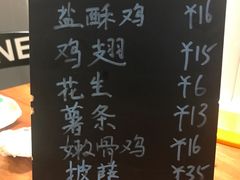 盐酥鸡 ¥16
鸡翅 ¥15
花生 ¥6
薯条 ¥13
嫩骨鸡 ¥16
披萨 ¥35
NE